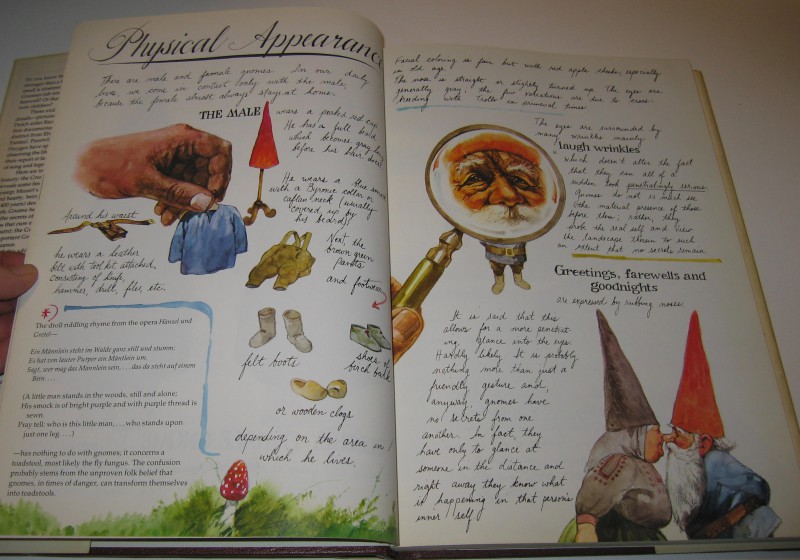 Physical Appearance
There are male and female gnomes. In our daily
lives, we come in contact only with the male,
because the female almost always stays at home.
THE MALE wears a peaked red cap.
He has a full beard,
which becomes gray long
before his hair does.
He wears a blue smock
with a Byronic collar or
captain neck (usually
covered up by
his beard)!
Around his waist
he wears a leather
belt with tool kit attached,
consisting of knife,
hammer, drill, files, etc.
Next the
brown green
pants
and footwear:
felt boots
shoes of
birch bark
or wooden clogs
depending on the area in
which he lives.
The droll riddling rhyme from the opera Hänsel und
Gretel—
Ein Männlein steht im Walde ganz still und stumm;
Es hat von lauter Purpur ein Mäntlein um.
Sagt, wer mag das Mannlein sein, . . . das da steht auf einem
Bein . . .
(A little man stands in the woods, still and alone;
His smock is of bright purple and with purple thread is
sewn.
Pray tell: who is this little man, . . . who stands upon
just one leg . . .)
—has nothing to do with gnomes; it concerns a
toadstool, most likely the fly fungus. The confusion
probably stems from the unproven folk belief that
gnomes, in times of danger, can transform themselves
into toadstools.
Facial coloring is fair, but with red apple cheeks, especially
in old age.
The nose is straight or slightly turned up. The eyes are
generally gray; the few variations are due to cross-
breeding with Trolls in primeval times.
The eyes are surrounded by
many wrinkles mainly
laugh wrinkles
which doesn't alter the fact
that they can all of a
sudden look penetratingly serious.
Gnomes do not so much see
the material essence of those
before them; rather, they
probe the real self and view
the landscape therein to such
an extent that no secrets remain.
Greetings, farewells and
goodnights
are expressed by rubbing noses.
It is said that this
allows for a more penetrat-
ing glance into the eyes.
Hardly likely. It is probably
nothing more than just a
friendly gesture and,
anyway, gnomes have
no secrets from one
another. In fact, they
have only to glance at
someone in the distance and
right away they know what
is happening in that person's
inner self.